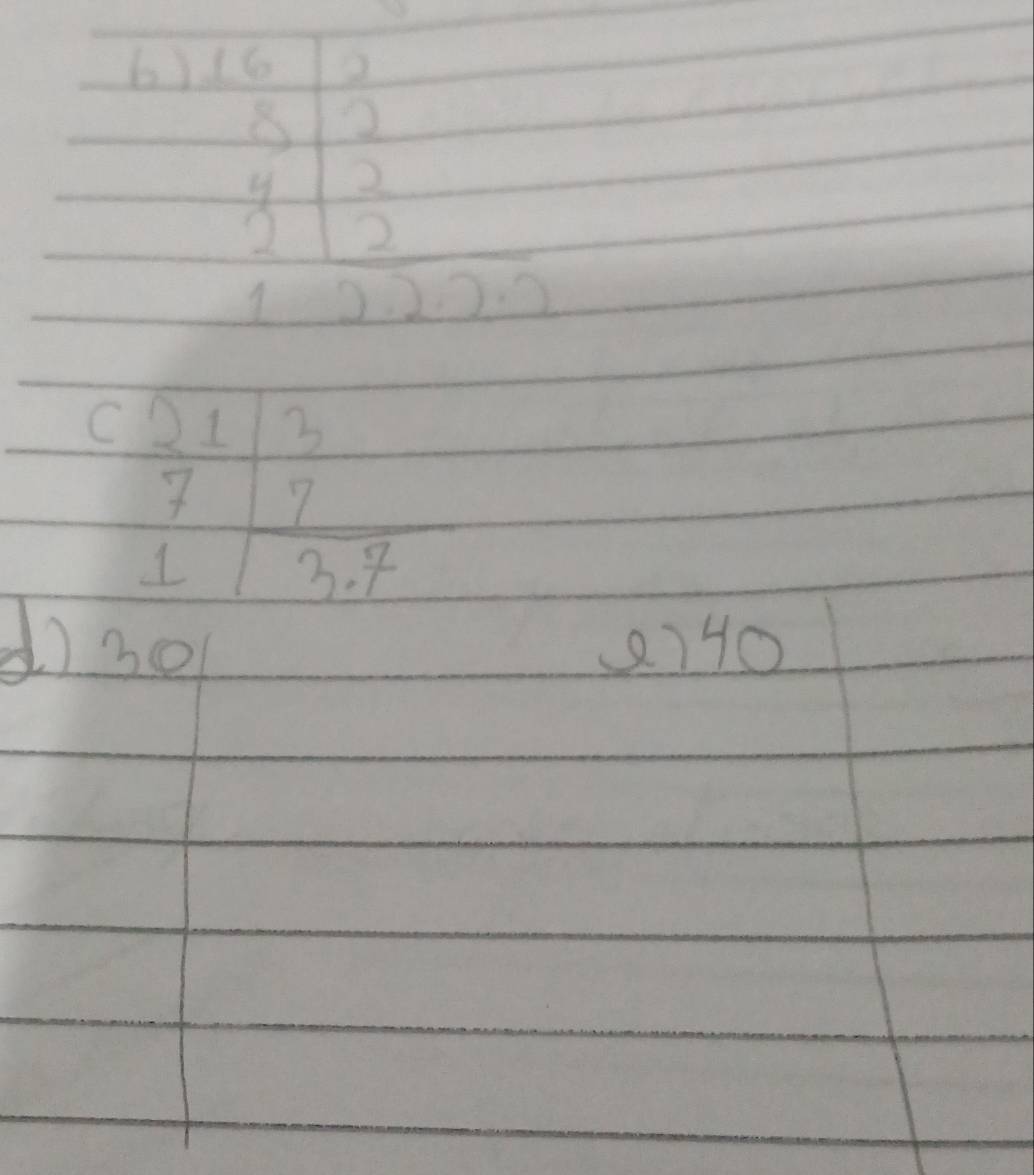 b) 16 | 2
8 | 2
4 | 2
2 | 2
1 2.2.2.2
c 21 | 3
7 | 7
1 | 3.7
d) 30 | e) 40 |